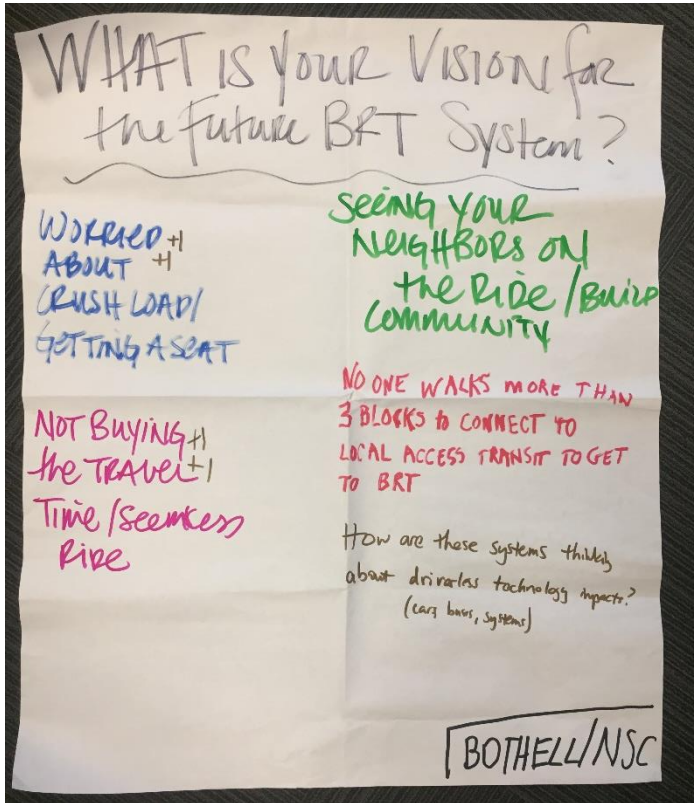 WHAT IS YOUR VISION for
the Future BRT System?
WORRIED +1
ABOUT +1
CRUSH LOAD/
GETTING A SEAT
NOT BUYING +1
the TRAVEL +1
Time/Seemless
RIDE
SEEING YOUR
NEIGHBORS ON
the RIDE/BUILD
COMMUNITY
NO ONE WALKS MORE THAN
3 BLOCKS to CONNECT TO
LOCAL ACCESS TRANSIT TO GET
TO BRT
How are these systems thinking
about driverless technology impacts?
(cars, buses, systems)
BOTHELL/NSC